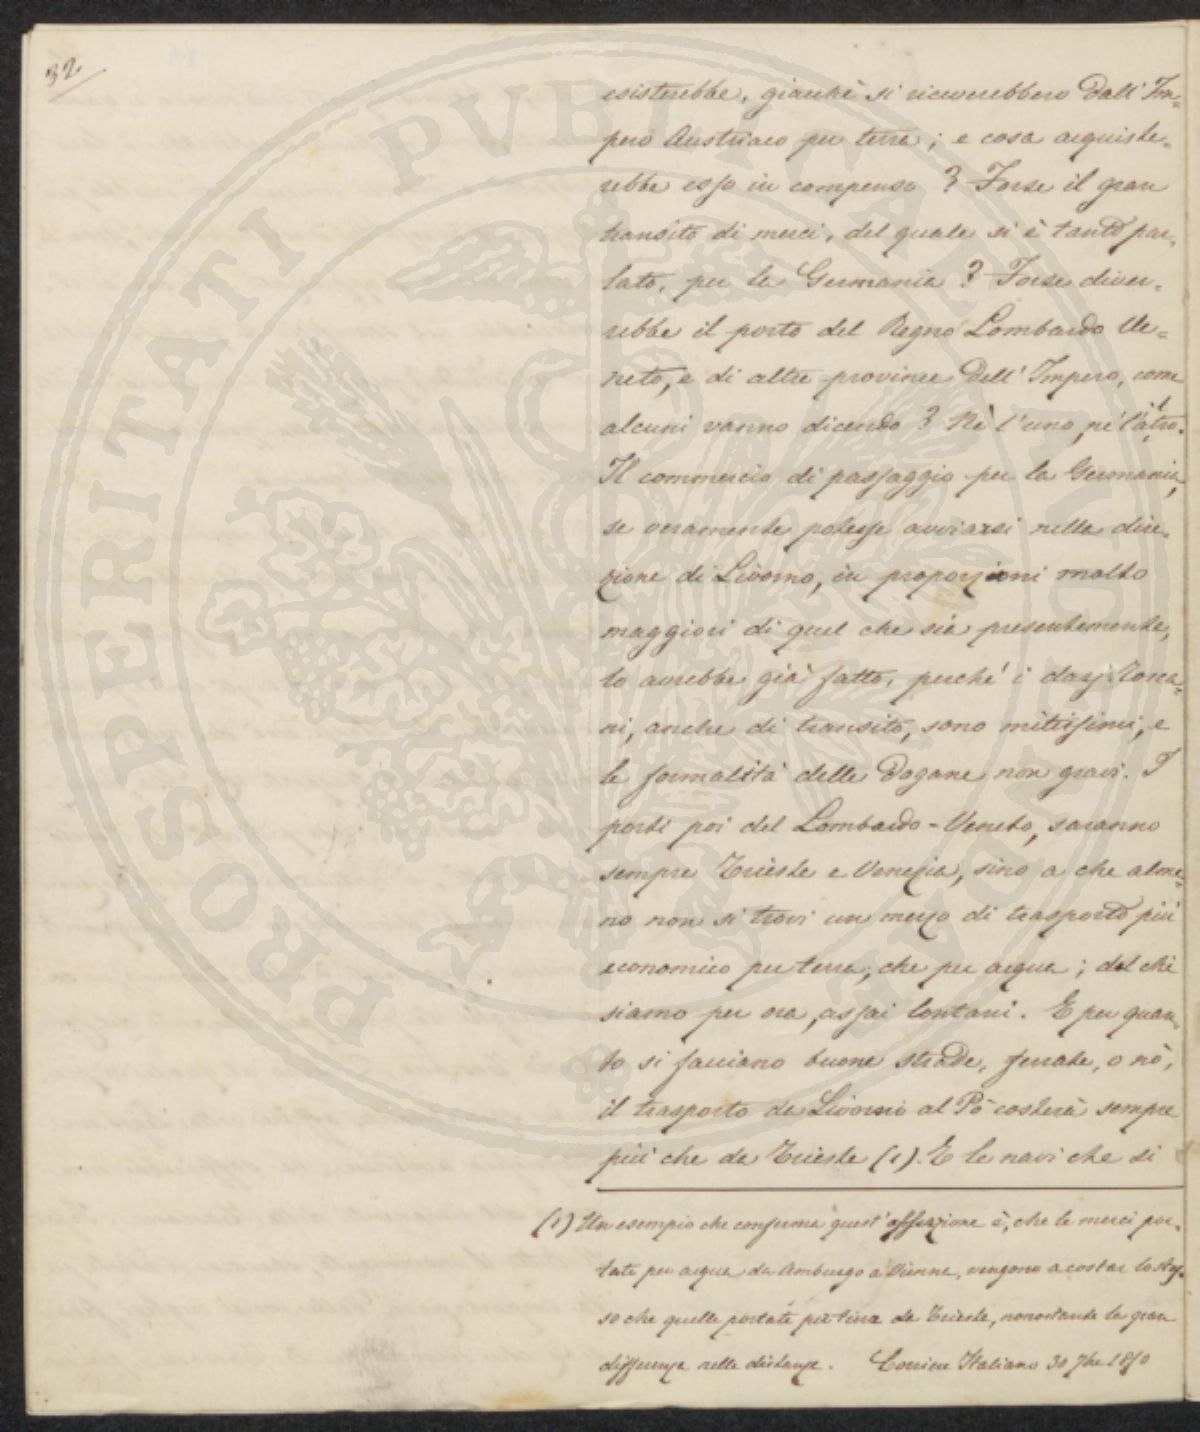 32
esisterebbe, giacchè si riceverebbero dall' Im=
pero Austriaco per terra; e cosa acquiste=
rebbe esso in compenso? Forse il gran
transito di merci, del quale si è tanto par=
lato, per la Germania? Forse diver=
rebbe il porto del Regno Lombardo Ve=
neto, e di altre provincie dell' Impero, come
alcuni vanno dicendo? Nè l'uno, nè l'altro.
Il commercio di passaggio per la Germania,
se veramente potesse avviarsi nella dire=
zione di Livorno, in proporzioni molto
maggiori di quel che sia presentemente,
lo avrebbe già fatto, perché i dazj Tosca=
ni, anche di transito, sono mitissimi, e
le formalità delle Dogane non gravi. I
porti poi del Lombardo-Veneto, saranno
sempre Trieste e Venezia, sino a che alme=
no non si trovi un mezzo di trasporto più
economico per terra, che per acqua; del chè
siamo per ora, assai lontani. E per quan=
to si facciano buone strade, ferrate, o nò,
il trasporto da Livorno al Pò costerà sempre
più che da Trieste (1). E le navi che di
(1) Un esempio che conferma quest'asserzione è, che le merci por=
tate per acqua da Amburgo a Vienna, vengono a costar lo stes=
so che quelle portate per terra da Trieste, nonostante la gran
differenza nelle distanze. Corriere Italiano 30 7bre 1850
PROSPERITATI PVBLICAE